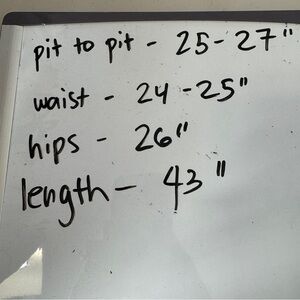 pit to pit - 25-27"
waist - 24-25"
hips - 26"
length - 43"